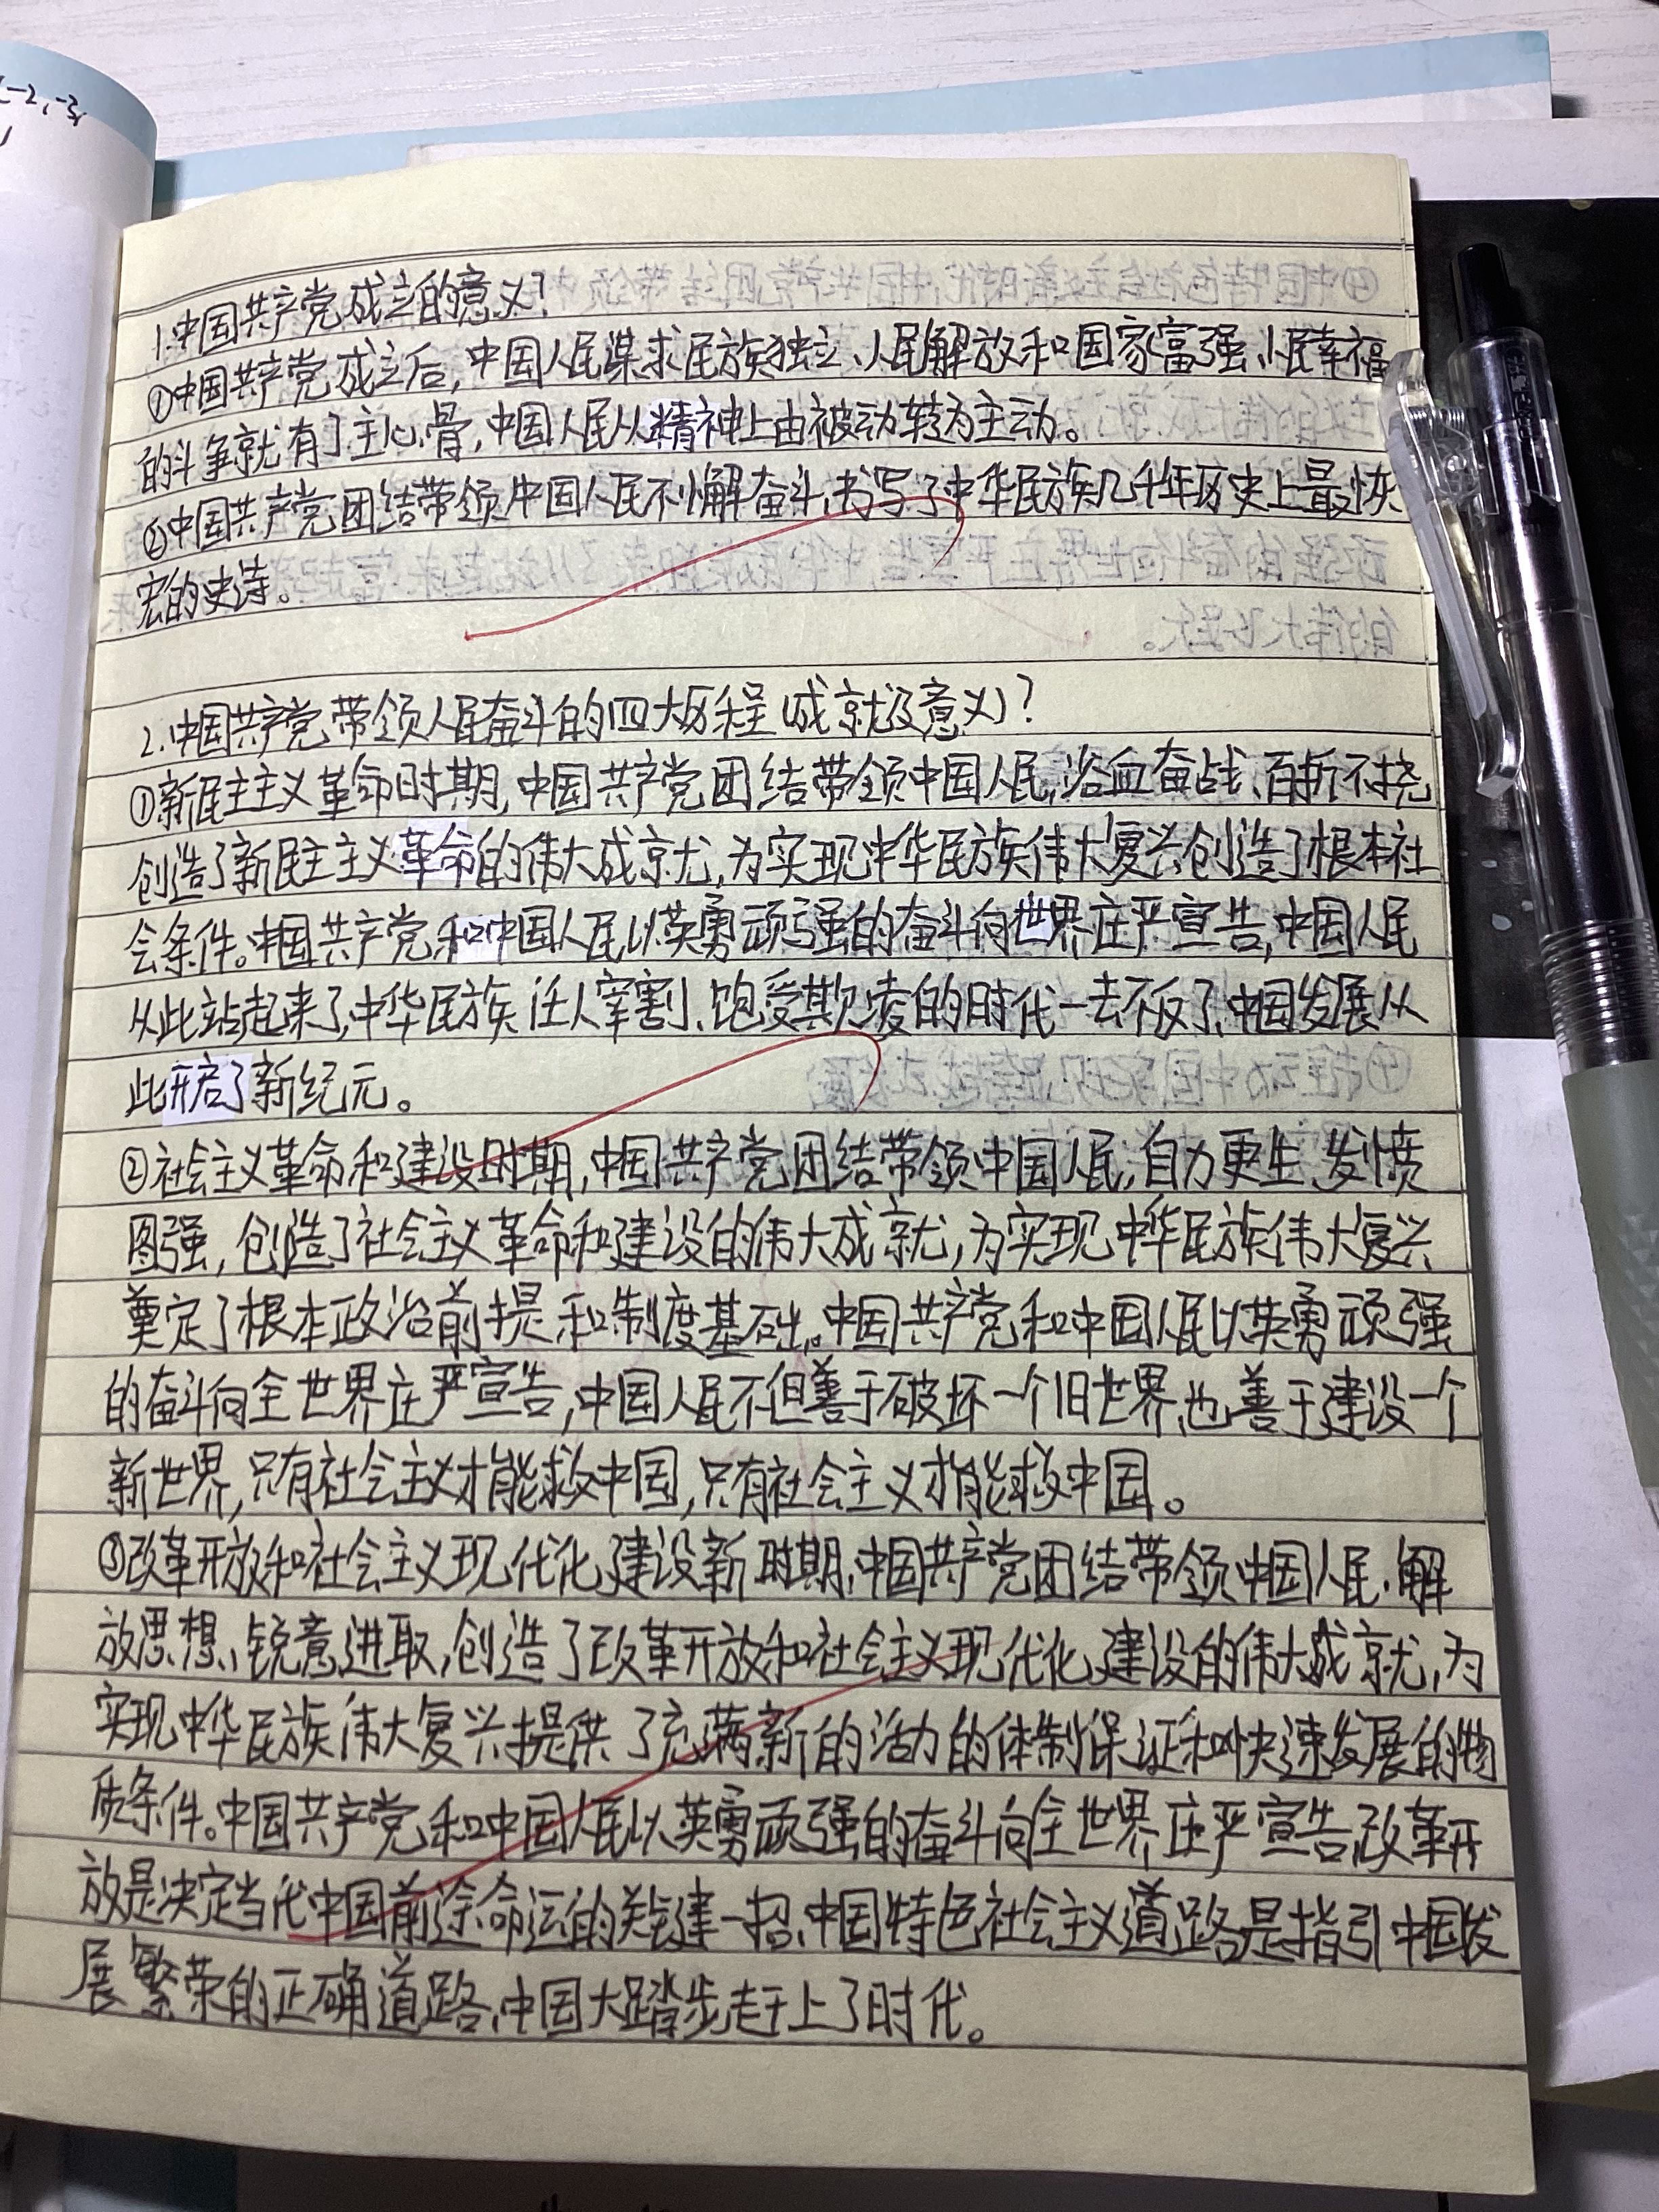 1.中国共产党成立的意义?
①中国共产党成立后,中国人民谋求民族独立、人民解放和国家富强、人民幸福
的斗争就有了主心骨,中国人民从精神上由被动转为主动。
②中国共产党团结带领中国人民不懈奋斗,书写了中华民族几千年历史上最恢
宏的史诗。
2.中国共产党带领人民奋斗的四大历程(成就及意义)?
①新民主主义革命时期,中国共产党团结带领中国人民,浴血奋战、百折不挠
创造了新民主主义革命的伟大成就,为实现中华民族伟大复兴创造了根本社
会条件。中国共产党和中国人民以英勇顽强的奋斗向世界庄严宣告,中国人民
从此站起来了,中华民族任人宰割、饱受欺凌的时代一去不反了,中国发展从
此开启了新纪元。
②社会主义革命和建设时期,中国共产党团结带领中国人民,自力更生、发愤
图强,创造了社会主义革命和建设的伟大成就,为实现中华民族伟大复兴
奠定了根本政治前提和制度基础。中国共产党和中国人民以英勇顽强
的奋斗向全世界庄严宣告,中国人民不但善于破坏一个旧世界,也善于建设一个
新世界,只有社会主义才能救中国,只有社会主义才能救中国。
③改革开放和社会主义现代化建设新时期,中国共产党团结带领中国人民,解
放思想、锐意进取,创造了改革开放和社会主义现代化建设的伟大成就,为
实现中华民族伟大复兴提供了充满新的活力的体制保证和快速发展的物
质条件。中国共产党和中国人民以英勇顽强的奋斗向全世界庄严宣告,改革开
放是决定当代中国前途命运的关键一招,中国特色社会主义道路是指引中国发
展繁荣的正确道路,中国大踏步赶上了时代。